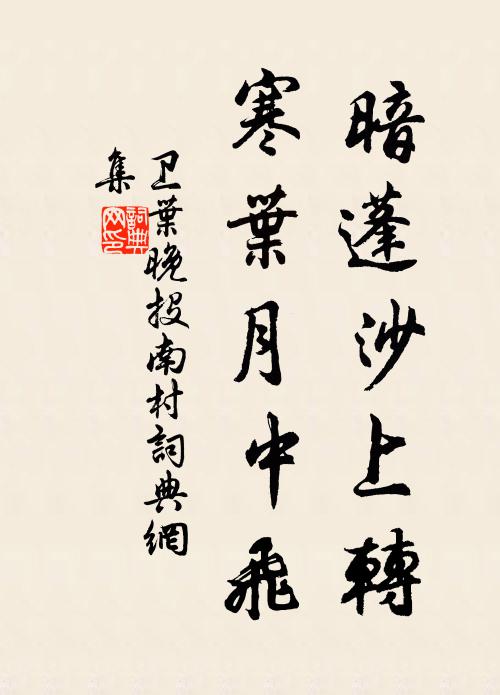 暗蓬沙上轉
寒葉月中飛
卫葉晚投南村詞典網
集
詞典
网印